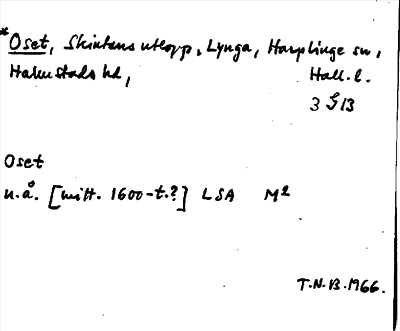 *Oset, Skintans utlopp, Lynga, Harplinge sn,
Halmstads hd, Hall. l.
3 G 13
Oset
u.å. [mitt. 1600-t.?] LSA M²
T.N.B. 1966.